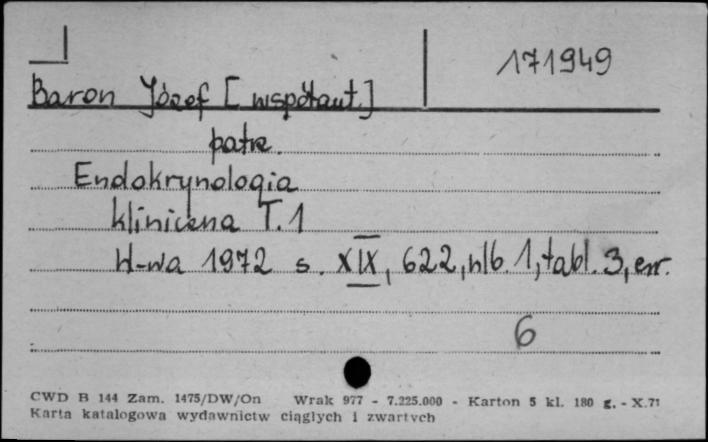 171949
Baron Józef [współaut.]
patrz.
Endokrynologia
kliniczna T.1
W-wa 1972 s. XIX, 622, nlb. 1, tabl. 3, err.
6
CWD B 144 Zam. 1475/DW/On Wrak 977 - 7.225.000 - Karton 5 kl. 180 g. - X.71
Karta katalogowa wydawnictw ciągłych i zwartych